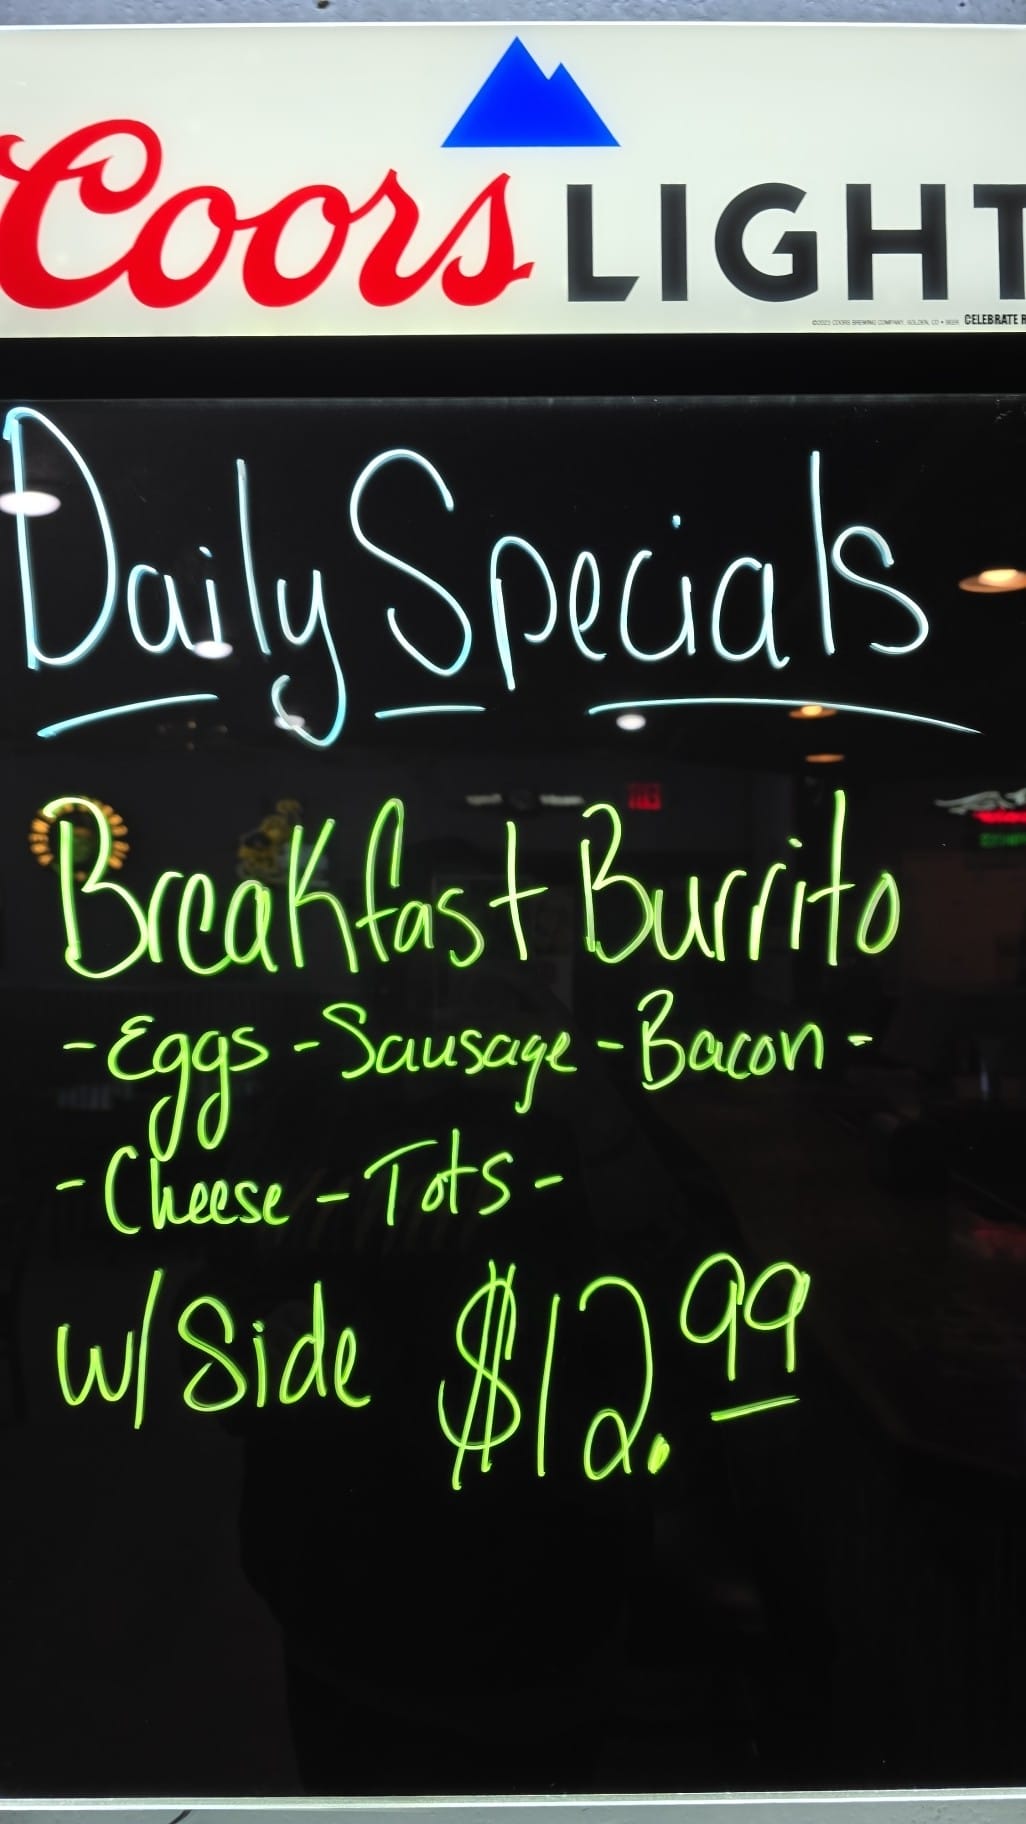 Coors LIGHT
©2023 COORS BREWING COMPANY, GOLDEN, CO • BEER CELEBRATE R
Daily Specials
Breakfast Burrito
- Eggs - Sausage - Bacon -
- Cheese - Tots -
w/ Side $12.99